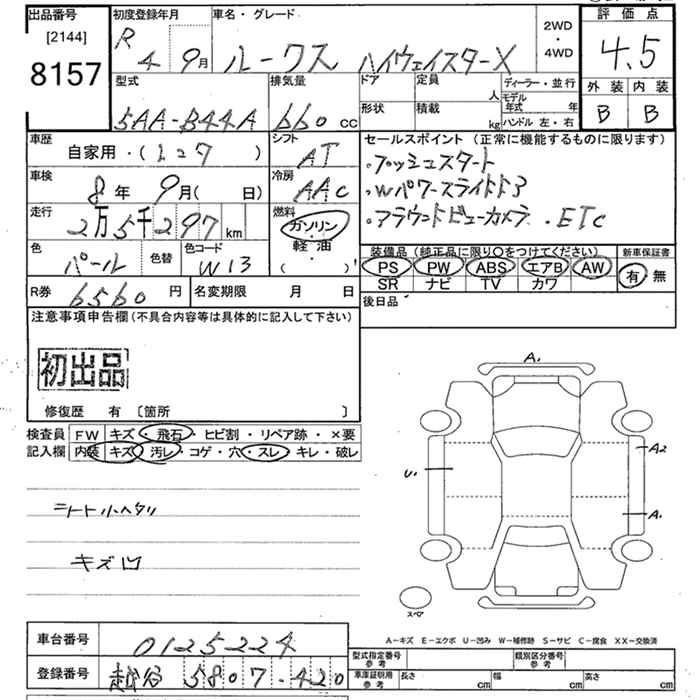 出品番号 初度登録年月 車名・グレード 2WD・4WD 評価点
[2144] R 4 9月 ルークス ハイウェイスターX 4.5
8157
型式 排気量 ドア 定員 人 ディーラー・並行 外装 内装
5AA-B44A 660 cc 形状 積載 kg モデル年式 年 ハンドル 左・右 B B
車歴 シフト セールスポイント (正常に機能するものに限ります)
自家用・( ) AT ・プッシュスタート
車検 冷房 ・Wパワースライドドア
8年 9月( 日) AAC ・アラウンドビューカメラ ・ETC
走行 燃料
2万5千297km ガソリン
軽油
( )
色 色替 色コード 装備品 (純正品に限り〇をつけてください) 新車保証書
パール W13 PS PW ABS エアB AW 有 無
SR ナビ TV カワ
R券 6560円 名変期限 月 日 後日品
注意事項申告欄(不具合内容等は具体的に記入して下さい)
初出品
修復歴 有 〔箇所 〕
検査員 FW キズ・飛石・ヒビ割・リペア跡・×要
記入欄 内装 キズ・汚レ・コゲ・穴・スレ・キレ・破レ
A1
A2
U1
A1
シート小ヘタリ
キズ凹
スペア
A-キズ E-エクボ U-凹み W-補修跡 S-サビ C-腐食 XX-交換済
車台番号 0125224 型式指定番号 参考 類別区分番号 参考
登録番号 越谷 580 7-420 車庫証明用 参考 長さ cm 幅 cm 高さ cm